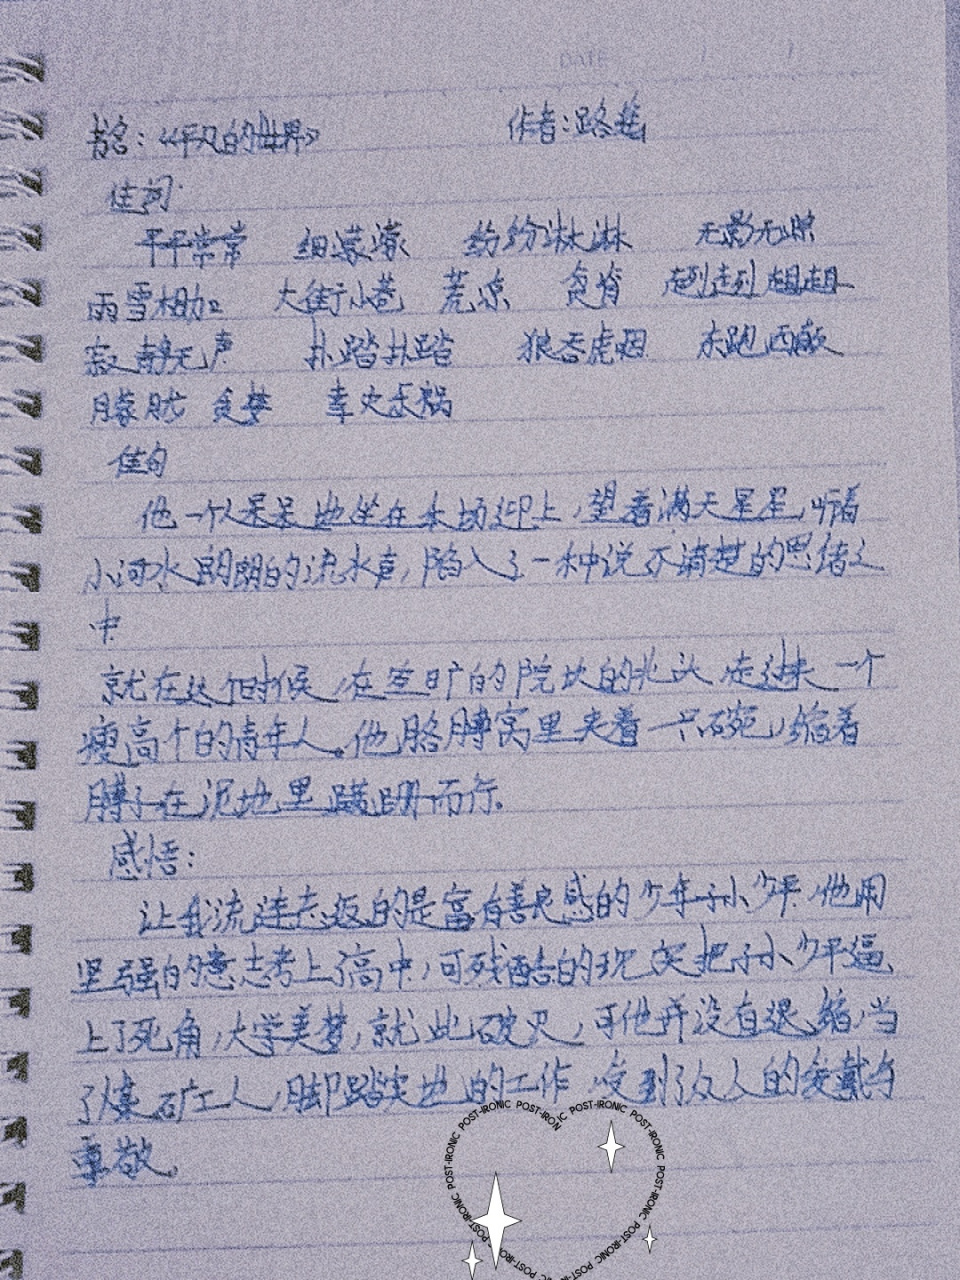 DATE
书名：《平凡的世界》 作者：路遥
佳词
平平常常 细濛濛 纷纷淋淋 无影无踪
雨雪相加 大街小巷 荒凉 贪脊 趔趔趄趄
寂静无声 扑踏扑踏 狼吞虎咽 东跑西颠
朦胧 美梦 幸灾乐祸
佳句
他一个人呆呆地坐在本场边上，望着满天星星，听着
小河水朗朗的流水声，陷入了一种说不清楚的思绪之
中
就在这个时候，在空旷的院坎的北头，走过来一个
瘦高个的青年人。他胳膊窝里夹着一只碗，缩着
脖子在泥地里蹒跚而行。
感悟：
让我流连志返的是富有善良感的少年孙少平，他用
坚强的意志考上了高中，可残酷的现实把孙少平逼
上了死角，大学美梦，就此破灭，可他并没有退缩，当
了煤矿工人，脚踏实地的工作，受到了众人的爱戴与
尊敬。
POST-IRONIC POST-IRONIC POST-IRONIC POST-IRONIC POST-IRONIC POST-IRONIC POST-IRONIC POST-IRONIC